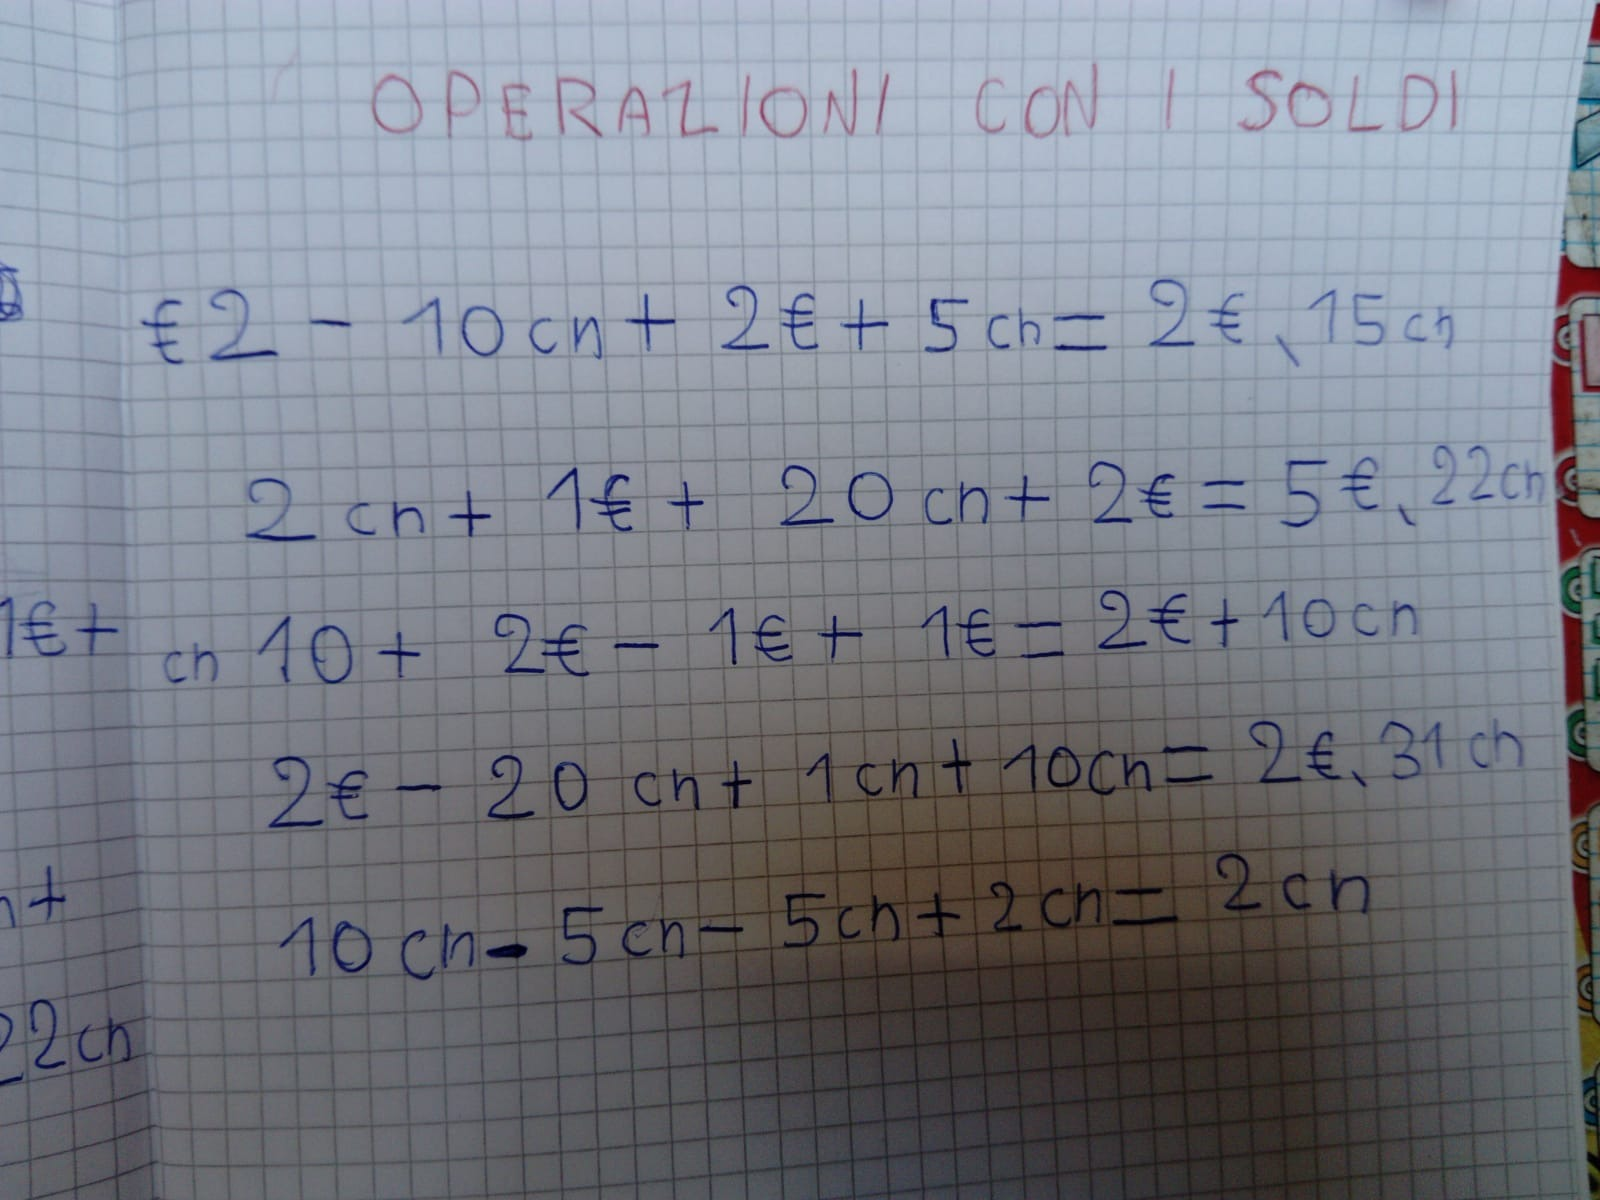 OPERAZIONI CON I SOLDI
€2 - 10cn + 2€ + 5cn = 2€, 15cn
2 cn + 1€ + 20 cn + 2€ = 5€, 22cn
1€ +
cn 10 + 2€ - 1€ + 1€ = 2€ + 10cn
2€ - 20 cn + 1cn + 10cn = 2€, 31cn
10 cn - 5cn - 5cn + 2cn = 2cn
22cn